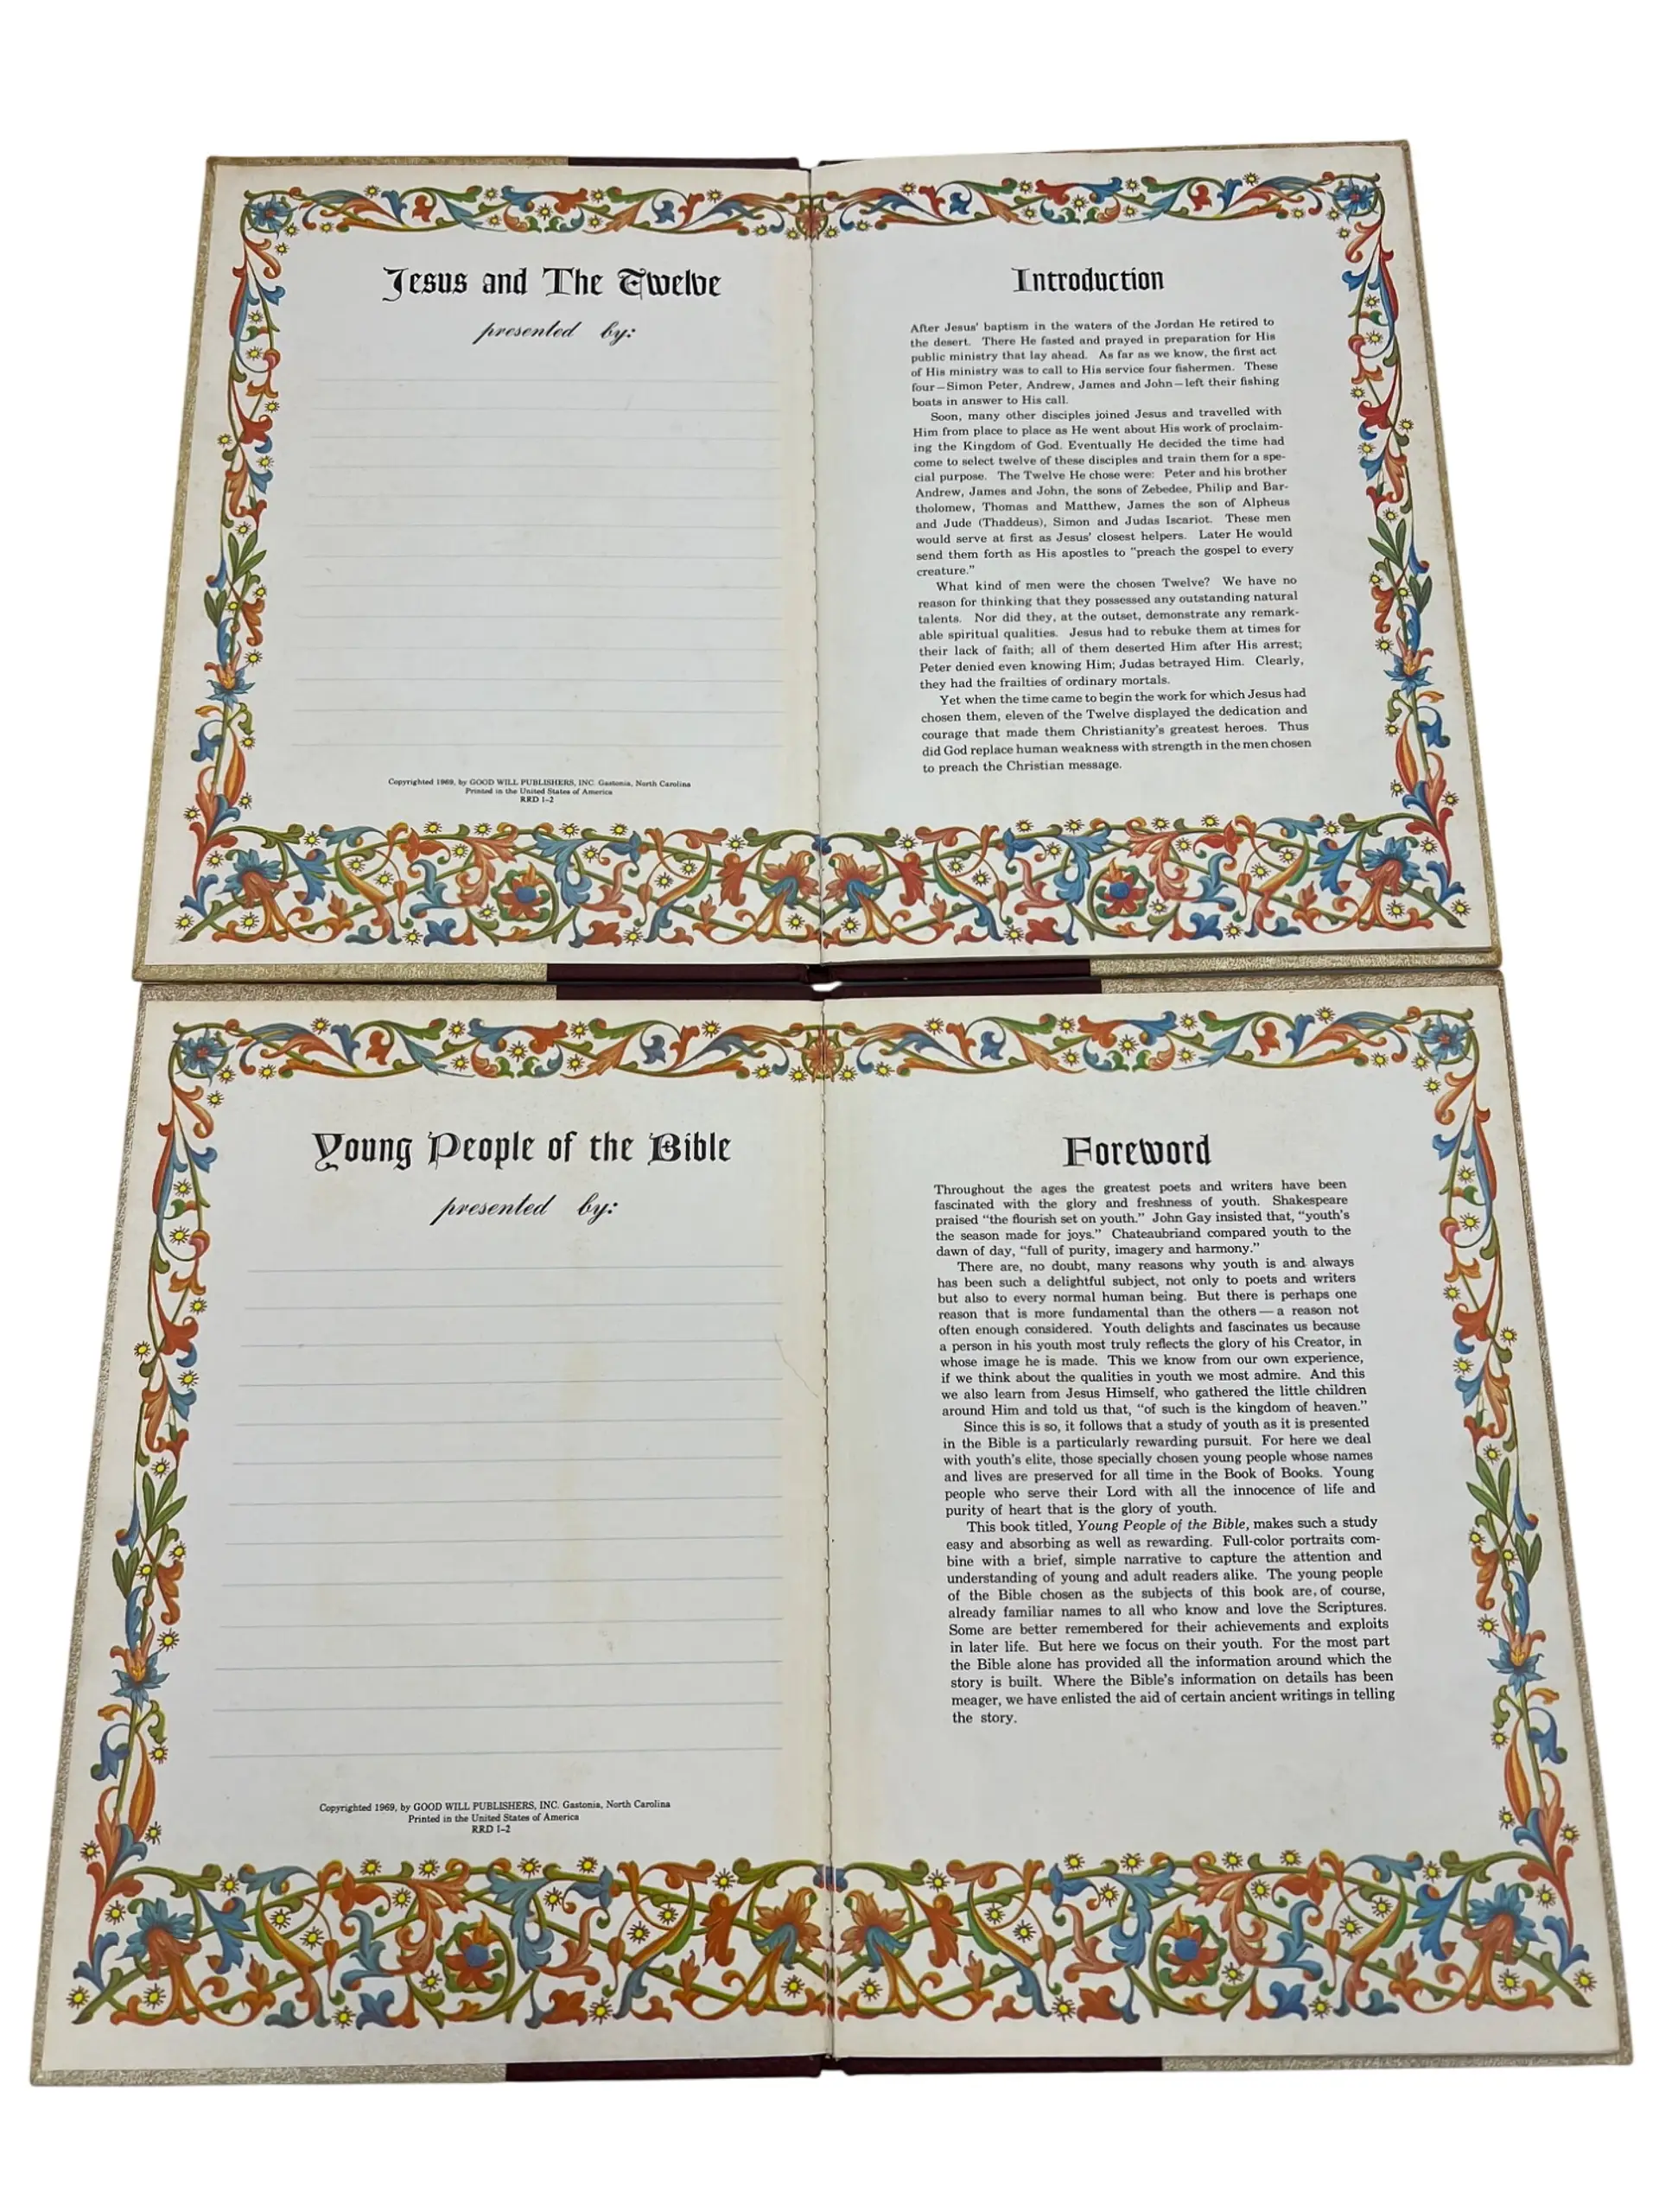 Jesus and The Twelve
presented by:
Copyrighted 1969, by GOOD WILL PUBLISHERS, INC. Gastonia, North Carolina
Printed in the United States of America
RRD 1-2
Introduction
After Jesus' baptism in the waters of the Jordan He retired to
the desert. There He fasted and prayed in preparation for His
public ministry that lay ahead. As far as we know, the first act
of His ministry was to call to His service four fishermen. These
four—Simon Peter, Andrew, James and John—left their fishing
boats in answer to His call.
Soon, many other disciples joined Jesus and travelled with
Him from place to place as He went about His work of proclaim-
ing the Kingdom of God. Eventually He decided the time had
come to select twelve of these disciples and train them for a spe-
cial purpose. The Twelve He chose were: Peter and his brother
Andrew, James and John, the sons of Zebedee, Philip and Bar-
tholomew, Thomas and Matthew, James the son of Alpheus
and Jude (Thaddeus), Simon and Judas Iscariot. These men
would serve at first as Jesus' closest helpers. Later He would
send them forth as His apostles to "preach the gospel to every
creature."
What kind of men were the chosen Twelve? We have no
reason for thinking that they possessed any outstanding natural
talents. Nor did they, at the outset, demonstrate any remark-
able spiritual qualities. Jesus had to rebuke them at times for
their lack of faith; all of them deserted Him after His arrest;
Peter denied even knowing Him; Judas betrayed Him. Clearly,
they had the frailties of ordinary mortals.
Yet when the time came to begin the work for which Jesus had
chosen them, eleven of the Twelve displayed the dedication and
courage that made them Christianity's greatest heroes. Thus
did God replace human weakness with strength in the men chosen
to preach the Christian message.
Young People of the Bible
presented by:
Copyrighted 1969, by GOOD WILL PUBLISHERS, INC. Gastonia, North Carolina
Printed in the United States of America
RRD 1-2
Foreword
Throughout the ages the greatest poets and writers have been
fascinated with the glory and freshness of youth. Shakespeare
praised "the flourish set on youth." John Gay insisted that, "youth's
the season made for joys." Chateaubriand compared youth to the
dawn of day, "full of purity, imagery and harmony."
There are, no doubt, many reasons why youth is and always
has been such a delightful subject, not only to poets and writers
but also to every normal human being. But there is perhaps one
reason that is more fundamental than the others — a reason not
often enough considered. Youth delights and fascinates us because
a person in his youth most truly reflects the glory of his Creator, in
whose image he is made. This we know from our own experience,
if we think about the qualities in youth we most admire. And this
we also learn from Jesus Himself, who gathered the little children
around Him and told us that, "of such is the kingdom of heaven."
Since this is so, it follows that a study of youth as it is presented
in the Bible is a particularly rewarding pursuit. For here we deal
with youth's elite, those specially chosen young people whose names
and lives are preserved for all time in the Book of Books. Young
people who serve their Lord with all the innocence of life and
purity of heart that is the glory of youth.
This book titled, Young People of the Bible, makes such a study
easy and absorbing as well as rewarding. Full-color portraits com-
bine with a brief, simple narrative to capture the attention and
understanding of young and adult readers alike. The young people
of the Bible chosen as the subjects of this book are, of course,
already familiar names to all who know and love the Scriptures.
Some are better remembered for their achievements and exploits
in later life. But here we focus on their youth. For the most part
the Bible alone has provided all the information around which the
story is built. Where the Bible's information on details has been
meager, we have enlisted the aid of certain ancient writings in telling
the story.